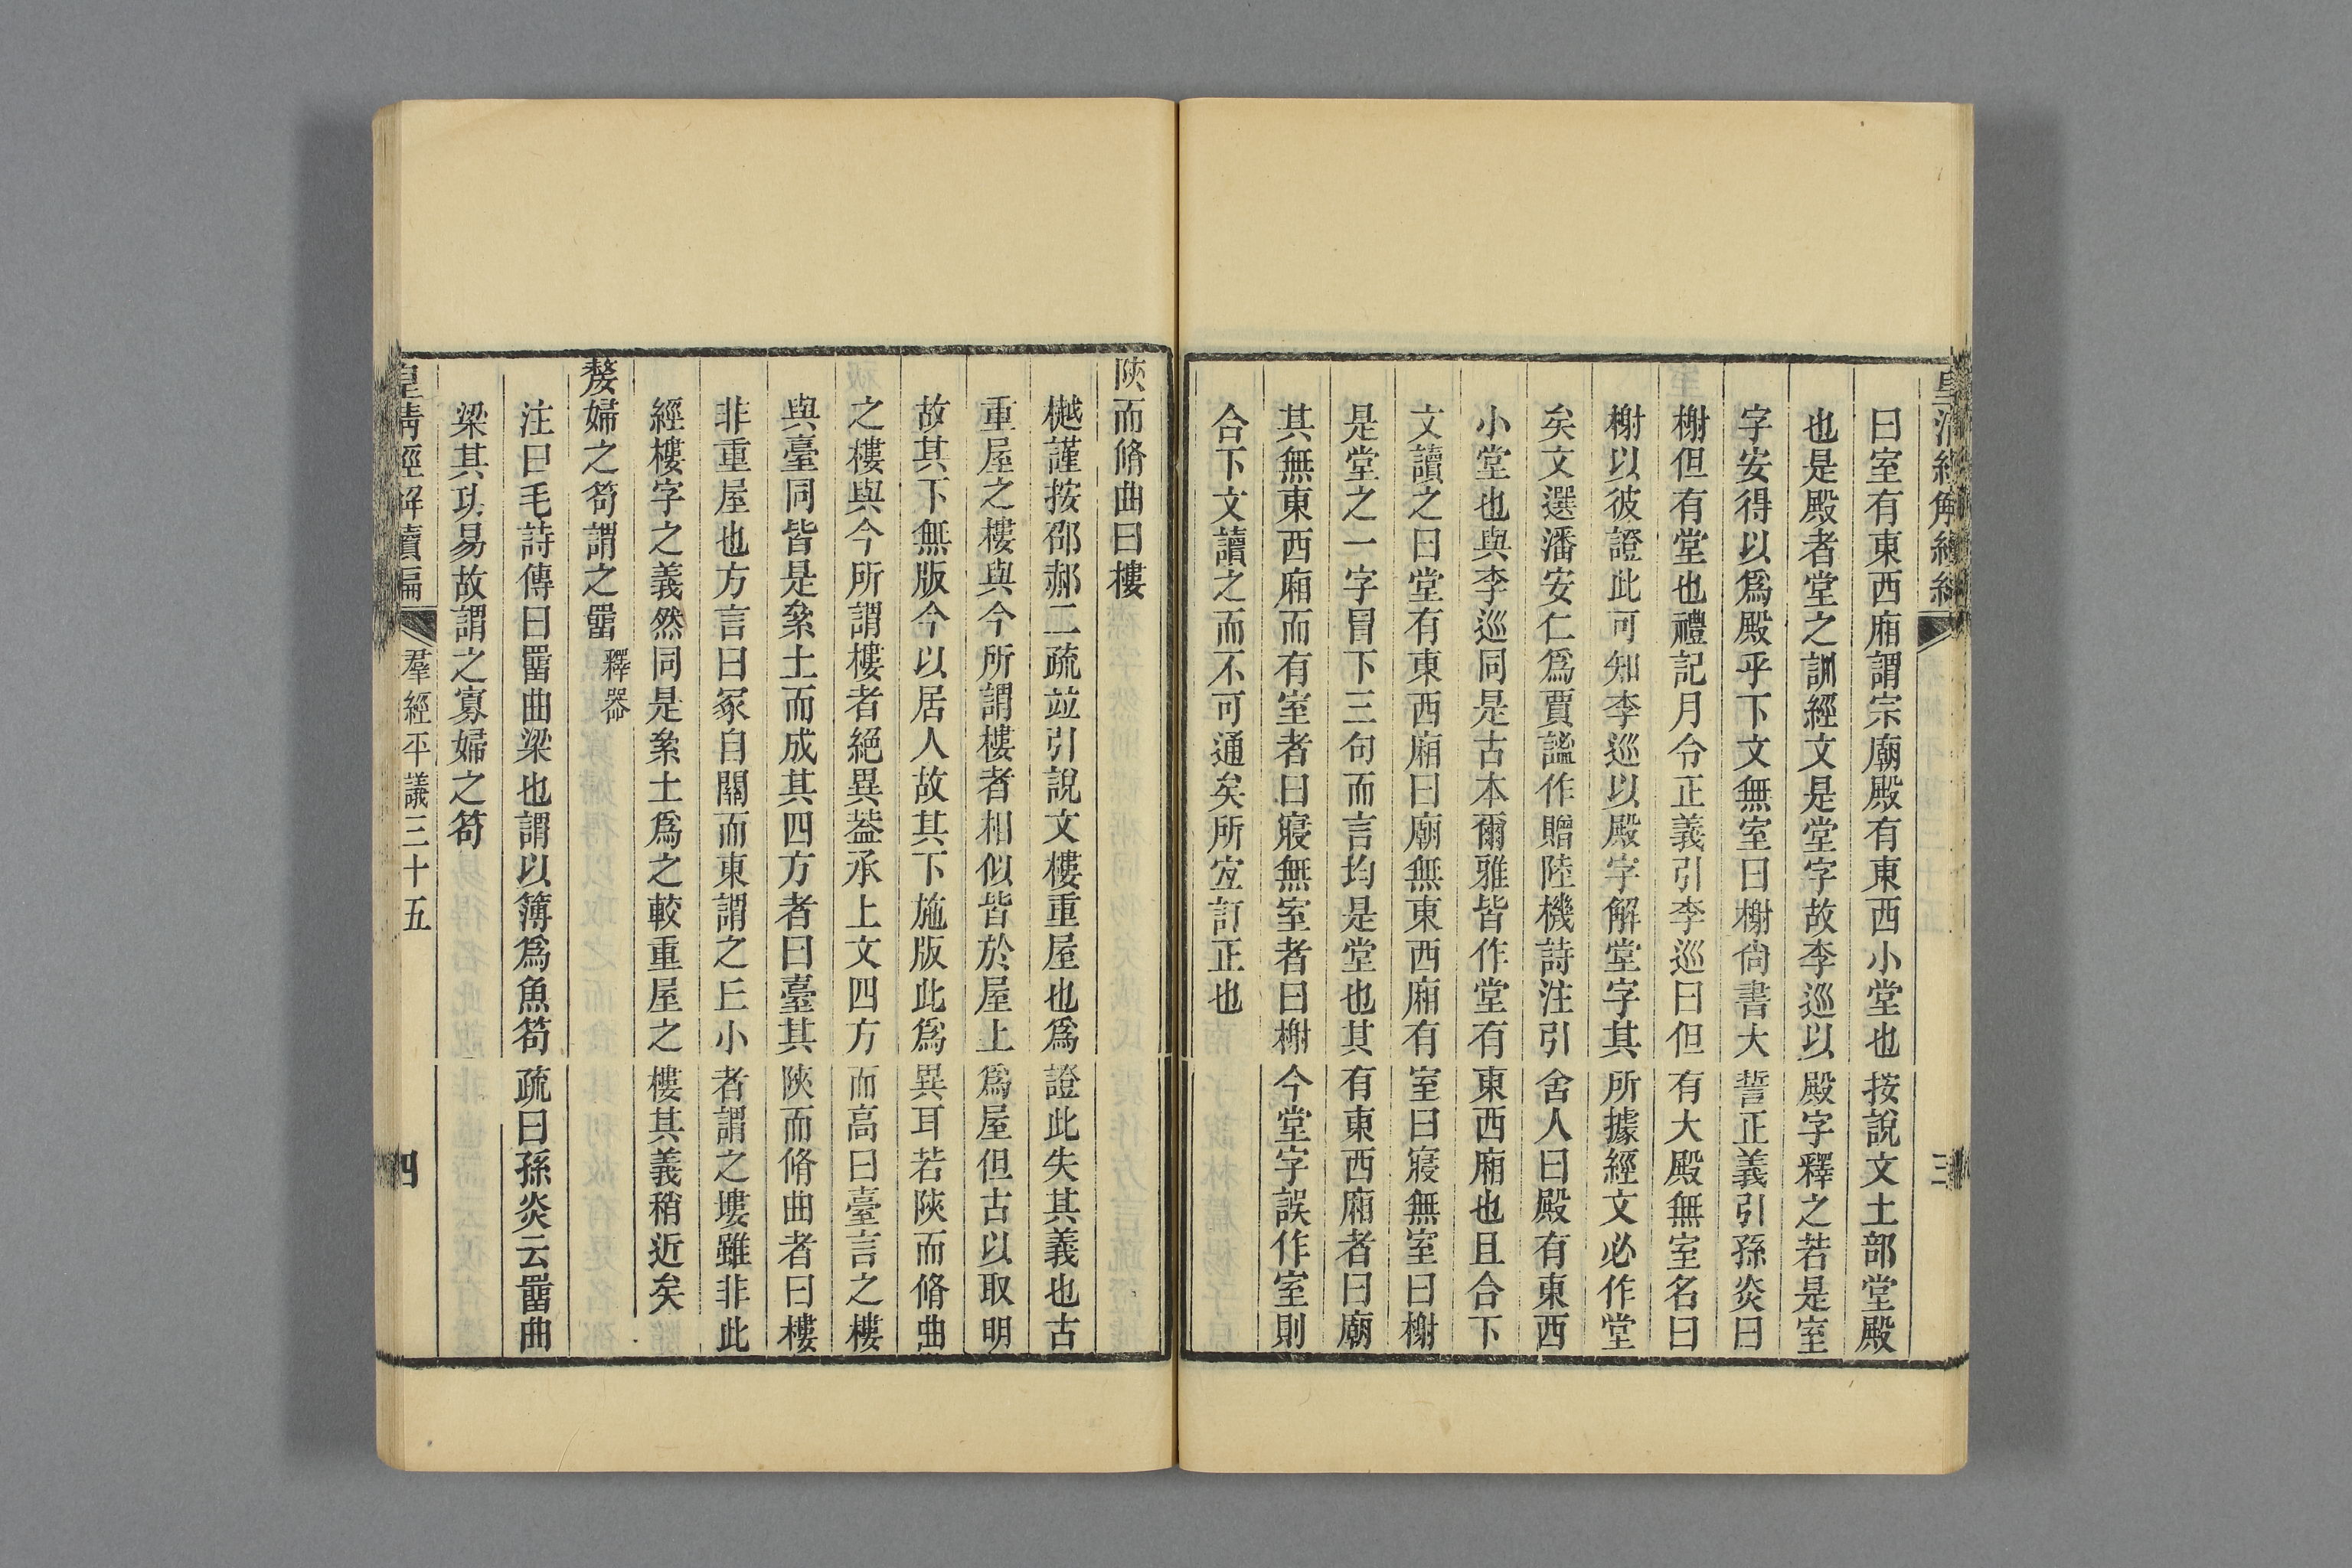 皇清經解續編
三
曰室有東西廂謂宗廟殿有東西小堂也按說文土部堂殿
也是殿者堂之訓經文是堂字故李巡以殿字釋之若是室
字安得以爲殿乎下文無室曰榭尙書大誓正義引孫炎曰
榭但有堂也禮記月令正義引李巡曰但有大殿無室名曰
榭以彼證此可知李巡以殿字解堂字其所據經文必作堂
矣文選潘安仁爲賈謐作贈陸機詩注引舍人曰殿有東西
小堂也與李巡同是古本爾雅皆作堂有東西廂也且合下
文讀之曰堂有東西廂曰廟無東西廂有室曰寢無室曰榭
是堂之一字冒下三句而言均是堂也其有東西廂者曰廟
其無東西廂而有室者曰寢無室者曰榭今堂字誤作室則
合下文讀之而不可通矣所宐訂正也
陜而脩曲曰樓
樾謹按邵郝二疏竝引說文樓重屋也爲證此失其義也古
重屋之樓與今所謂樓者相似皆於屋上爲屋但古以取明
故其下無版今以居人故其下施版此爲異耳若陜而脩曲
之樓與今所謂樓者絕異葢承上文四方而高曰臺言之樓
與臺同皆是絫土而成其四方者曰臺其陜而脩曲者曰樓
非重屋也方言曰冢自關而東謂之丘小者謂之塿雖非此
經樓字之義然同是絫土爲之較重屋之樓其義稍近矣
嫠婦之笱謂之罶 釋器
注曰毛詩傳曰罶曲梁也謂以簿爲魚笱 疏曰孫炎云罶曲
梁其功易故謂之寡婦之笱
皇清經解續編
羣經平議三十五
四